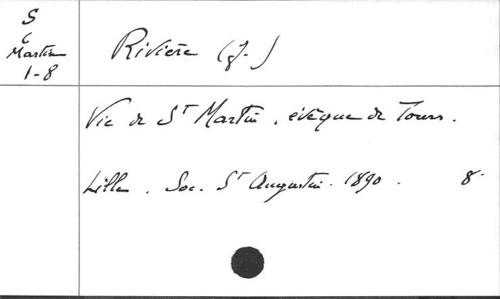 S
C
Martin
1-8
Rivière (J.)
Vie de St Martin, évêque de Tours.
Lille. Soc. St Augustin. 1890. 8°